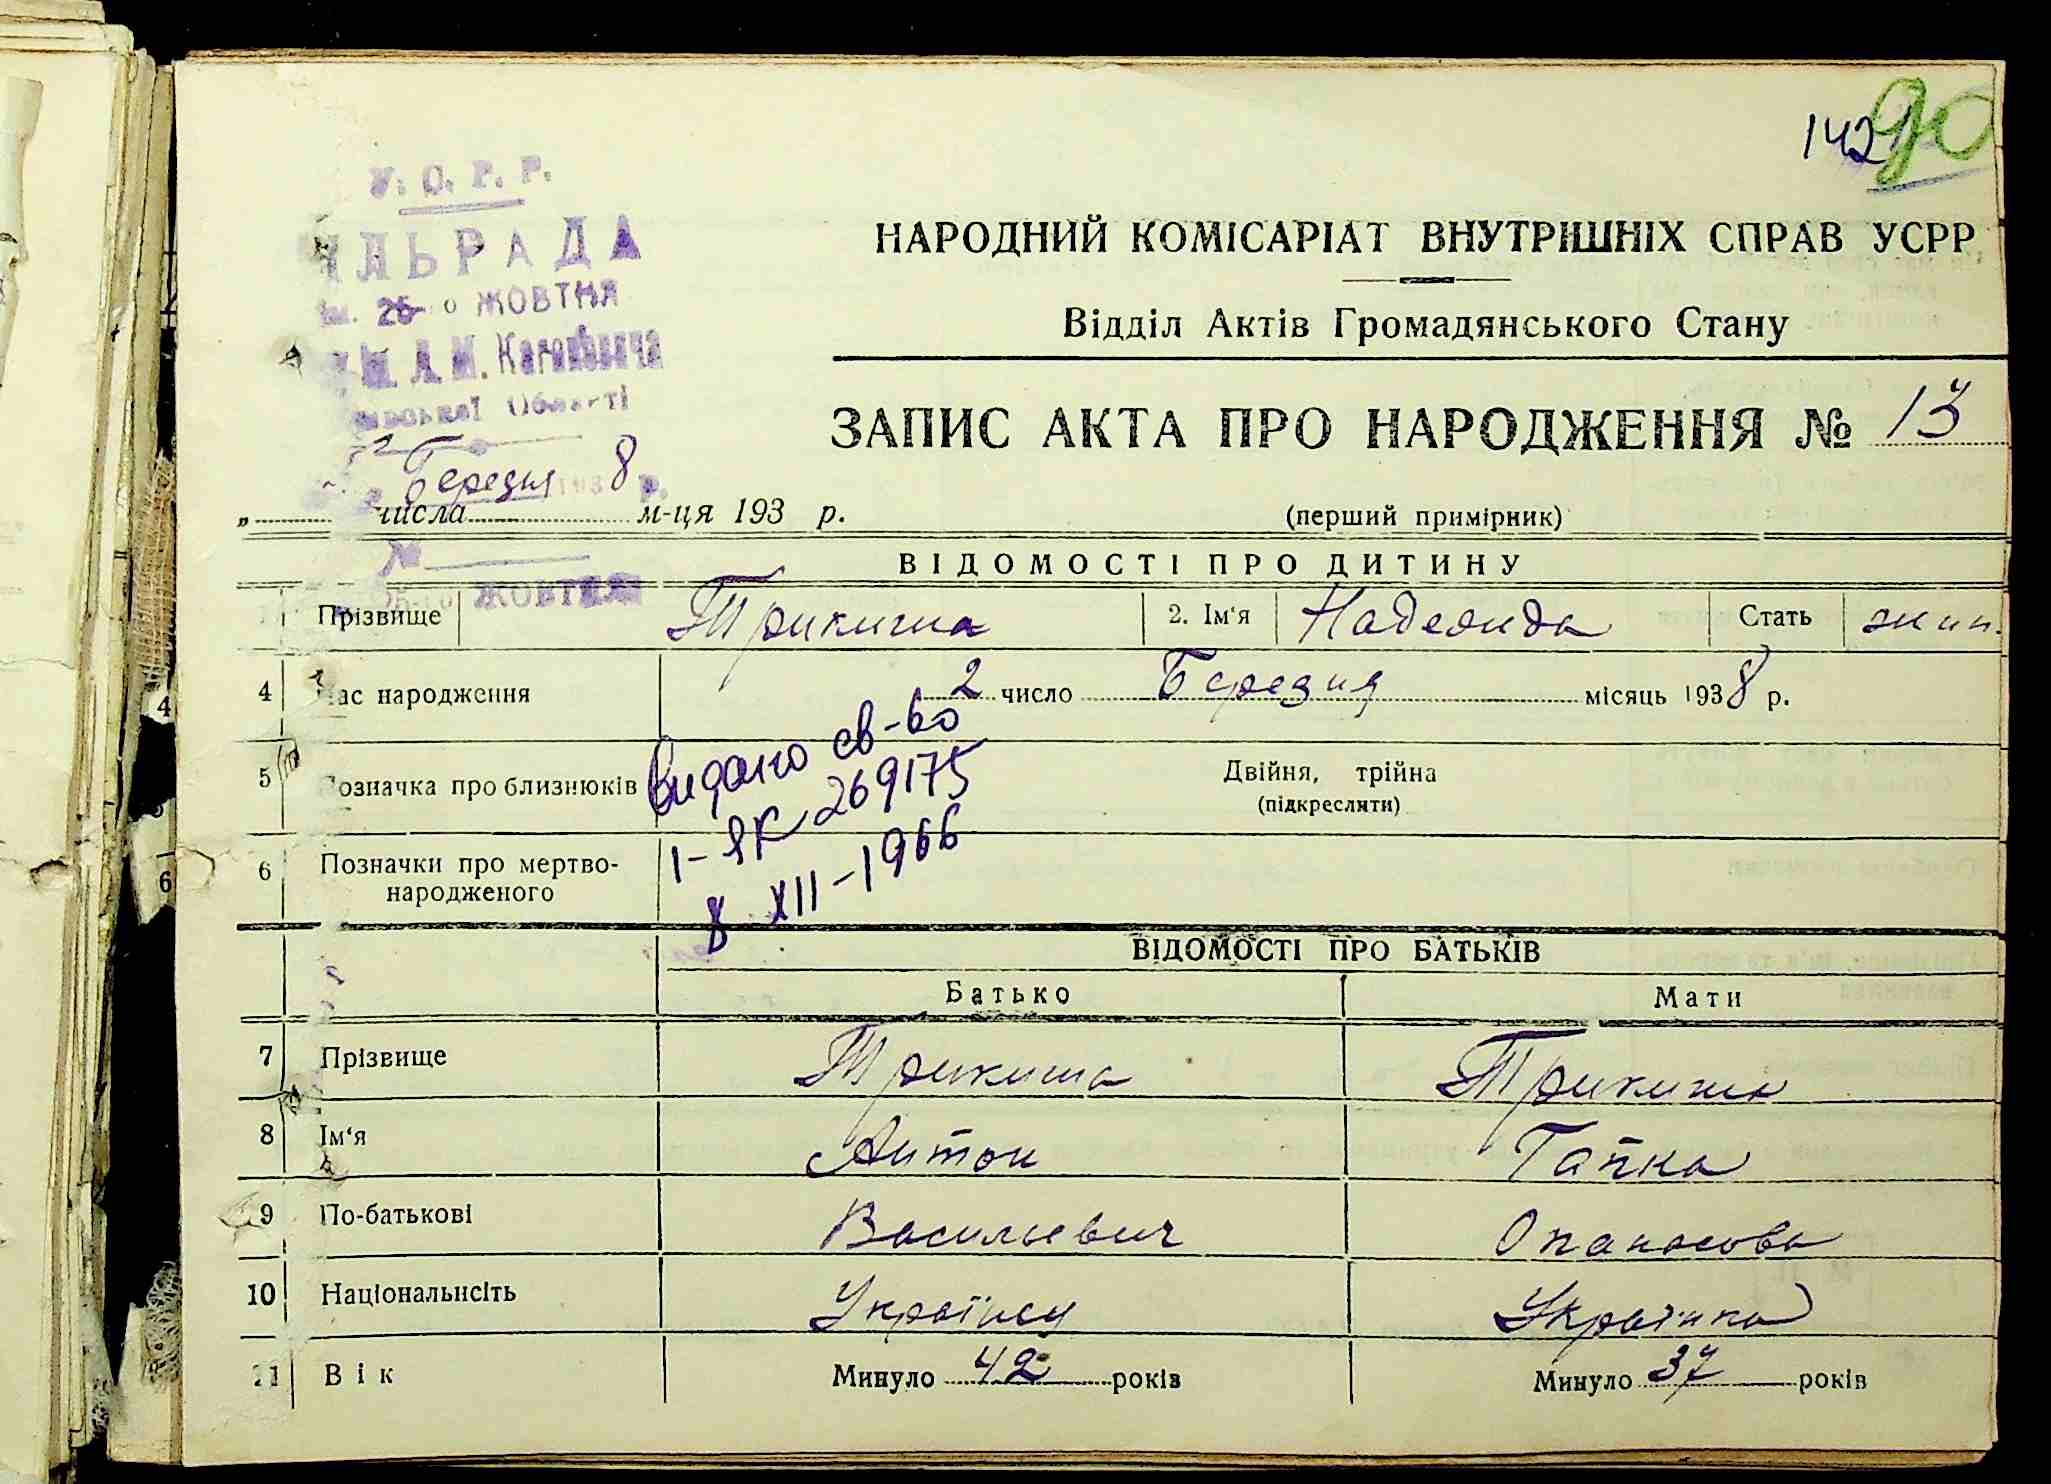 142 90
У. С. Р. Р.
ІЛЬРАДА
ім. 25 о ЖОВТНЯ
ім. Л. М. Кагановича
Області
Березня 8 р.
„ числа м-ця 193 р.
№
25-го ЖОВТНЯ
НАРОДНИЙ КОМІСАРІАТ ВНУТРІШНІХ СПРАВ УСРР
Відділ Актів Громадянського Стану
ЗАПИС АКТА ПРО НАРОДЖЕННЯ № 13
(перший примірник)
ВІДОМОСТІ ПРО ДИТИНУ
1 Прізвище Трикиша 2. Ім'я Надеонда Стать жин.
4 Час народження 2 число Березня місяць 1938 р.
5 Позначка про близнюків Двійня, трійна
(підкреслити)
Видано св-во
І-ЯК 269175
8 XII-1966
6 Позначки про мертво-
народженого
ВІДОМОСТІ ПРО БАТЬКІВ
Батько Мати
7 Прізвище Трикиша Трикиша
8 Ім'я Антон Гапка
9 По-батькові Васильевич Опанасова
10 Національність Україн​ец Українка
11 Вік Минуло 42 років Минуло 37 років
4
6